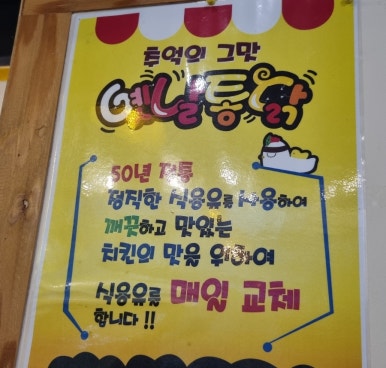 추억의 그맛
옛날통닭
50년 전통
정직한 식용유류 사용하여
깨끗하고 맛있는
치킨의 맛을 위하여
식용유류 매일 교체
합니다 !!